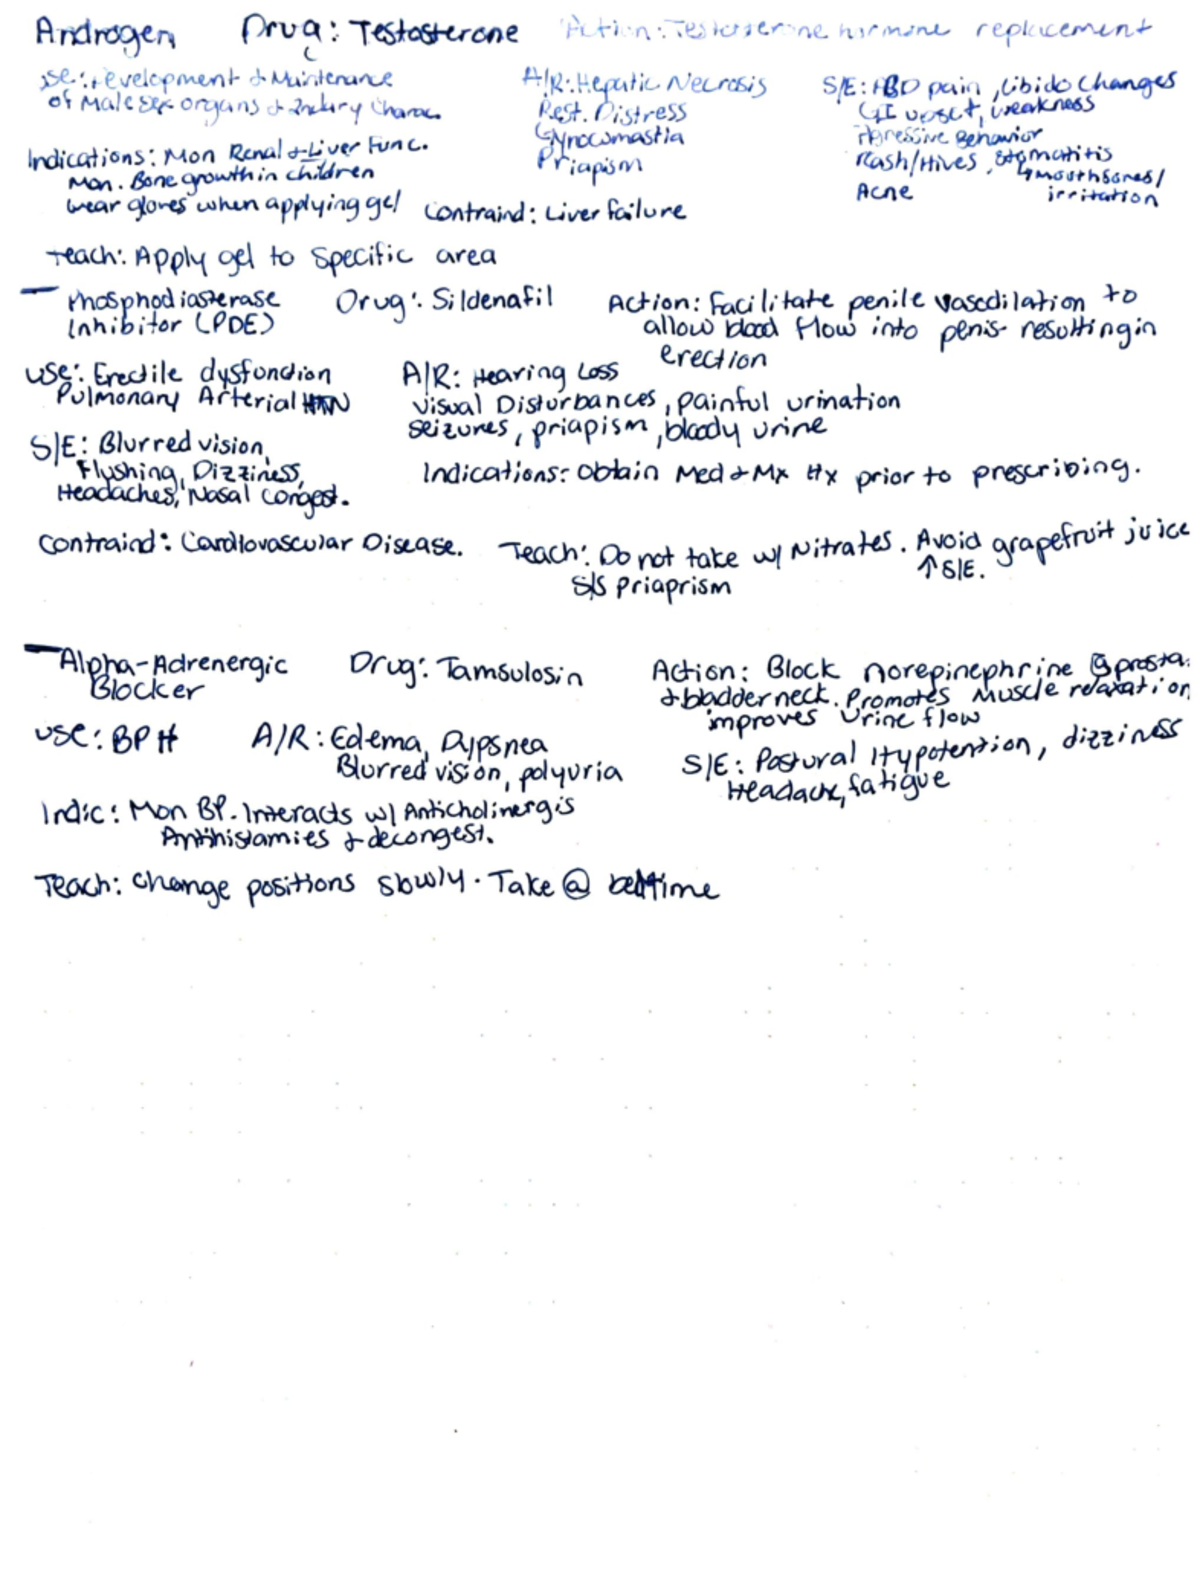 Androgen Drug: Testosterone Action: Testosterone hormone replacement
use: Development & Maintenance
of Male sex organs & 2ndary Charac.
A/R: Hepatic Necrosis
Rest. Distress
Gynocomastia
Priapism
S/E: ABD pain, Libido Changes
GI upset, weakness
Agressive Behavior
Rash/Hives, Stomatitis
↳ mouth sores/
Acne irritation
Indications: Mon Renal & Liver Func.
Mon. Bone growth in children
wear gloves when applying gel
Contraind: Liver failure
Teach: Apply gel to specific area
Phosphodiasterase
Inhibitor (PDE)
Drug: Sildenafil
Action: Facilitate penile vasodilation to
allow blood flow into penis resulting in
erection
use: Erectile dysfunction
Pulmonary Arterial HTN
A/R: Hearing Loss
Visual Disturbances, painful urination
seizures, priapism, bloody urine
S/E: Blurred vision,
Flushing, Dizziness,
Headaches, Nasal Congest.
Indications: Obtain Med & Mx Hx prior to prescribing.
Contraind: Cardiovascular Disease.
Teach: Do not take w/ Nitrates. Avoid grapefruit juice
↑ S/E.
S/S priaprism
Alpha-Adrenergic
Blocker
Drug: Tamsulosin
Action: Block norepinephrine @ prosta.
& bladder neck. Promotes Muscle relaxation
improves Urine flow
use: BPH
A/R: Edema, Dypsnea
Blurred vision, polyuria
S/E: Postural Hypotention, dizziness
Headache, fatigue
Indic: Mon BP. Interacts w/ Anticholinergis
Antihistamies & decongest.
Teach: Change positions slowly. Take @ bedtime